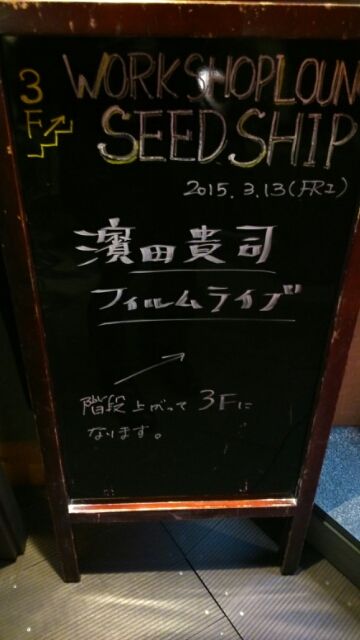 3F
WORKSHOPLOUN
SEEDSHIP
2015.3.13(FRI)
濱田貴司
フィルムライブ
階段上がって3Fに
なります。